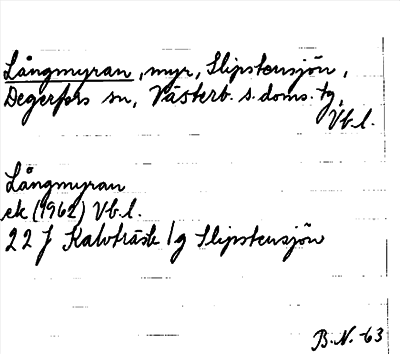 Långmyran, myr, Slipstensjön,
Degerfors sn, Västerb. s. doms. tg,
Vb.l.
Långmyran
ek (1962) Vb.l.
22 J Kalvträsk 1g Slipstensjön
B.N. -63